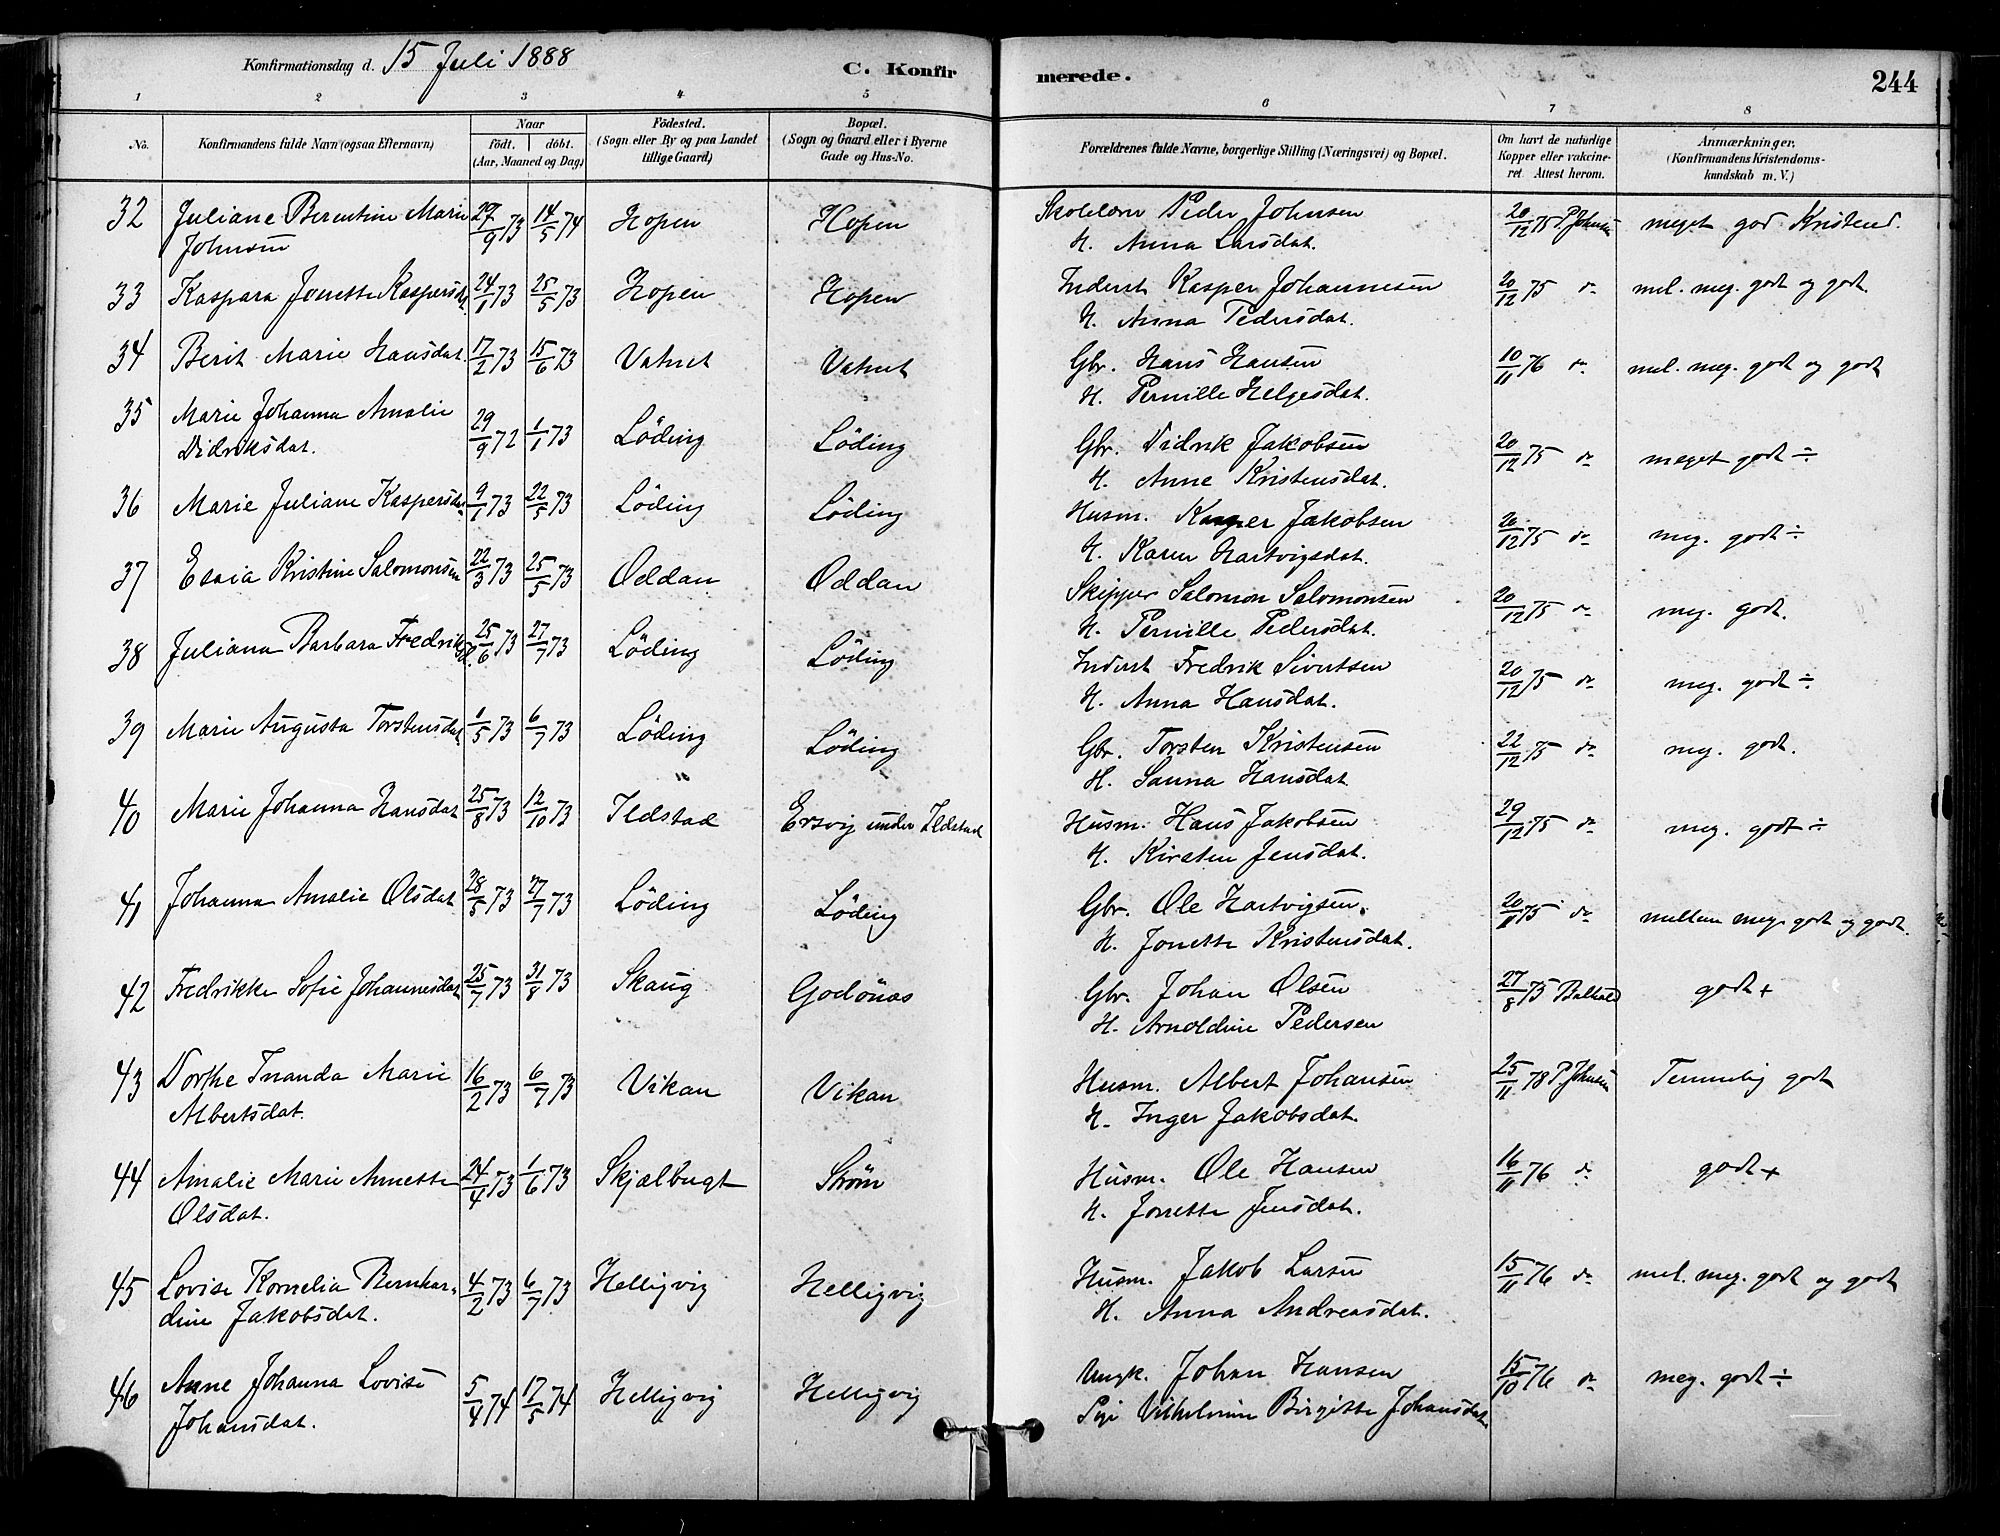 Konfirmationsdag d. 15 Juli 1888 C. Konfirmerede. 244
1 2 3 4 5 6 7 8
No. Konfirmandens fulde Navn (ogsaa Efternavn) Naar født. døbt. (Aar, Maaned og Dag) Fødested. (Sogn eller By og paa Landet tillige Gaard) Bopæl. (Sogn og Gaard eller i Byerne Gade og Hus-No.) Forældrenes fulde Navne, borgerlige Stilling (Næringsvei) og Bopæl. Om havt de naturlige Kopper eller vakcineret. Attest herom. Anmærkninger. (Konfirmandens Kristendomskundskab m. V.)
32 Juliane Berentine Marie 27/9 73 14/5 74 Hopen Hopen Skolelærer Peder Johnsen 20/12 75 P Johnsen meget god Kristend.
Johnsen H. Anna Larsdat.
33 Kaspara Jonette Kaspersdat 24/1 73 25/5 73 Hopen Hopen Inderst Kasper Johannesen 20/12 75 do mel. meg. godt og godt
H. Anna Pedersdat.
34 Berit Marie Hansdat. 17/2 73 15/6 73 Vatnet Vatnet Gbr. Hans Hansen 10/11 76 do mel. meg. godt og godt
H. Pernille Helgesdat.
35 Marie Johanna Amalie
Didriksdat. 29/9 72 1/1 73 Löding Löding Gbr. Didrik Jakobsen 20/12 75 do meget godt ÷
H. Anne Kristensdat.
36 Marie Juliane Kaspersdat 9/1 73 22/5 73 Löding Löding Husm. Kasper Jakobsen 20/12 75 do meg. godt ÷
H. Karen Hartvigsdat.
37 Esaia Kristine Salomonsen 22/3 73 25/5 73 Oddan Oddan Skipper Salomon Salomonsen 20/12 75 do meg. godt.
H. Pernille Pedersdat.
38 Juliana Barbara Fredriksd. 25/6 73 27/7 73 Löding Löding Inderst Fredrik Sivertsen 20/12 75 do meg. godt ÷
H. Anna Hansdat.
39 Marie Augusta Torstensdat 1/5 73 6/7 73 Löding Löding Gbr. Torsten Kristensen 22/12 75 do meg. godt.
H. Sanna Hansdat
40 Marie Johanna Hansdat 25/8 73 12/10 73 Ildstad Ersvig under Ildstad Husm. Hans Jakobsen 29/12 75 do meg. godt ÷
H. Kirsten Jensdat.
41 Johanna Amalie Olsdat 28/5 73 27/7 73 Löding Löding Gbr. Ole Hartvigsen. 20/11 75 do mellem meg. godt og godt.
H. Jonette Kristensdat.
42 Fredrikke Sofie Johannesdat 25/7 73 31/8 73 Skaug Godönæs Gbr. Johan Olsen 27/8 75 godt +
H. Arnoldine Pedersen
43 Dorthe Inanda Marie 16/2 73 6/7 73 Vikan Vikan Husm. Albert Johansen 25/11 78 P Johnsen Temmelig godt
Albertsdat. H. Inger Jakobsdat.
44 Amalie Marie Annette 24/4 73 1/6 73 Skjælbugt Strøm Husm. Ole Hansen 16/11 76 do godt +
Olsdat. H. Jonette Jensdat.
45 Lovise Kornelia Bernhar- 4/2 73 6/7 73 Helligvig Helligvig Husm. Jakob Larsen 15/11 76 do mel. meg. godt og godt
dine Jakobsdat. H. Anna Andreasdat.
46 Anne Johanna Lovise 5/4 74 17/5 74 Helligvig Helligvig Ungk. Johan Hansen 15/10 76 do meg. godt ÷
Johansdat. Pige Vilhelmine Birgitte Johansdat.